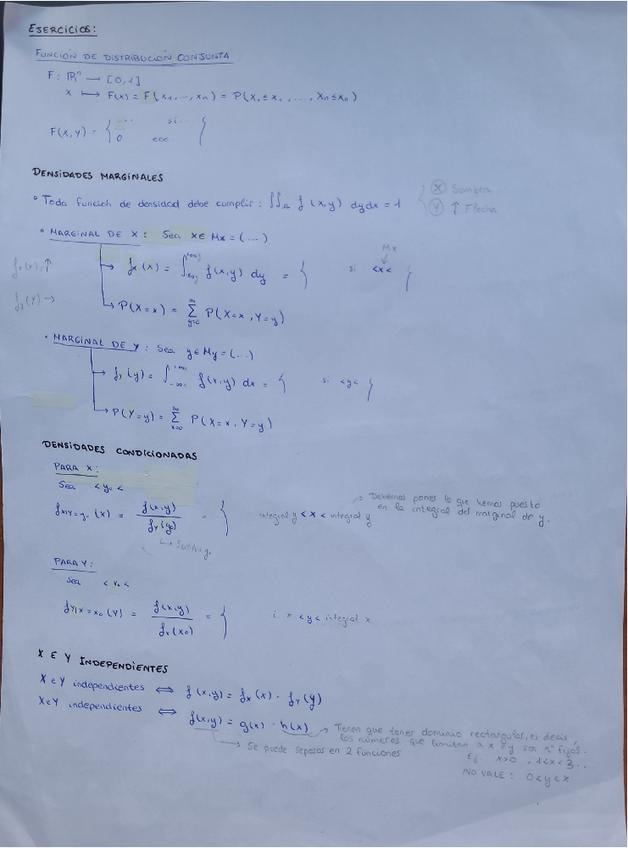 EJERCICIOS:
FUNCIÓN DE DISTRIBUCIÓN CONJUNTA
F: ℝⁿ → [0,1]
x ↦ F(x) = F(x₁, ..., xₙ) = P(X₁ ≤ x₁, ..., Xₙ ≤ xₙ)
F(x,y) = { ... si ...
0 eoc }
DENSIDADES MARGINALES
• Toda función de densidad debe cumplir: ∬ f(x,y) dydx = 1
(X) Sombra
(Y) ↑ Flecha
• MARGINAL DE X: Sea x ∈ Mx = (...)
Mx
fₓ(x) = ∫ f(x,y) dy = { si <x< }
fₓ(x) ↑
fᵧ(y) →
P(X=x) = Σ P(X=x, Y=y)
y=0
• MARGINAL DE Y: Sea y ∈ My = (...)
fᵧ(y) = ∫ f(x,y) dx = { si <y< }
P(Y=y) = Σ P(X=x, Y=y)
x=0
DENSIDADES CONDICIONADAS
PARA X:
Sea < y₀ <
f X|Y=y₀ (x) = f(x,y) / fᵧ(y) = { integral y < x < integral y
→ Debemos poner lo que hemos puesto
en la integral del marginal de y.
PARA Y:
Sea < x₀ <
f Y|X=x₀ (y) = f(x,y) / fₓ(x₀) = { x < y < integral x
X E Y INDEPENDIENTES
X e Y independientes ⟺ f(x,y) = fₓ(x) · fᵧ(y)
X e Y independientes ⟺ f(x,y) = g(x) · h(x)
→ Tienen que tener dominio rectangular, es decir,
los números que limitan a x e y son nº fijos.
→ Se puede separar en 2 funciones
Ej. x>0, 1<x<3...
NO VALE: 0<y<x